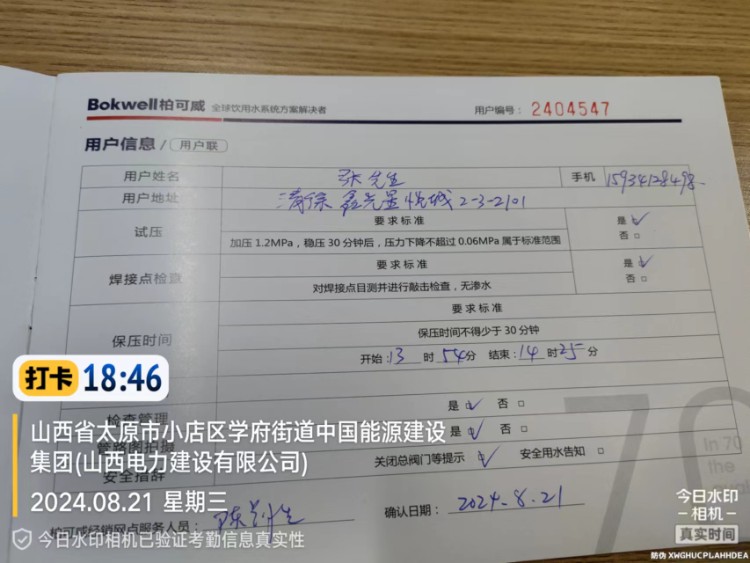 Bokwell柏可威 全球饮用水系统方案解决者 用户编号：2404547
用户信息/ 用户联
用户姓名 张先生 手机 15934128498
用户地址 清徐 鑫光星悦城 2-3-2101
试压 要求标准 是 ✓
加压 1.2MPa，稳压 30 分钟后，压力下降不超过 0.06MPa 属于标准范围 否 □
焊接点检查 要求标准 是 ✓
对焊接点目测并进行敲击检查，无渗水 否 □
保压时间 要求标准
保压时间不得少于 30 分钟
开始：13 时 54 分 结束：14 时 25 分
打卡 18:46
检查管理 是 ✓ 否 □
管路图拍摄 是 ✓ 否 □
安全措辞 关闭总阀门等提示 ✓ 安全用水告知 □
山西省太原市小店区学府街道中国能源建设
集团(山西电力建设有限公司)
2024.08.21 星期三
70
In 70
the
柏可威经销网点服务人员： 确认日期：2024.8.21
今日水印相机已验证考勤信息真实性
今日水印
相机
真实时间
防伪 XWGHUCPLAHHDEA